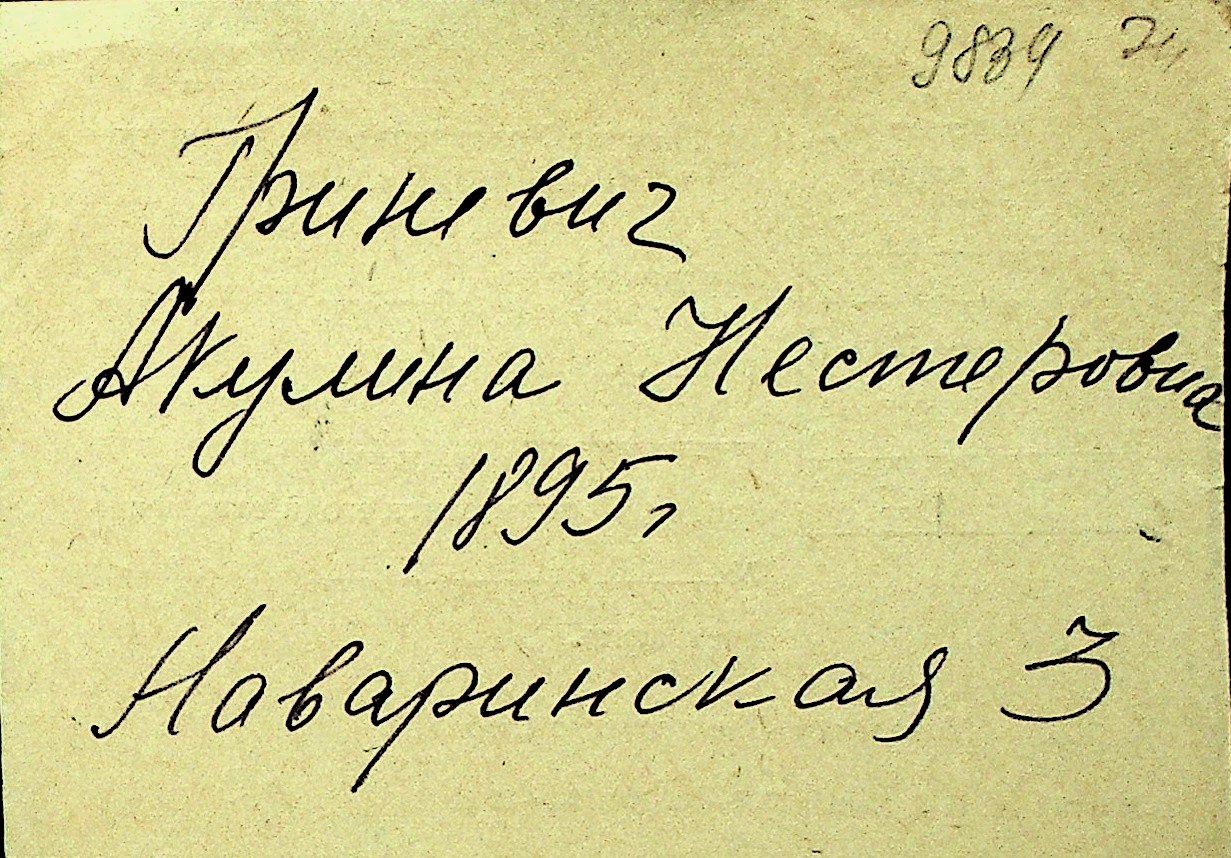 9839
Гриневич
Акулина Нестеровна
1895г
Наваринская 3